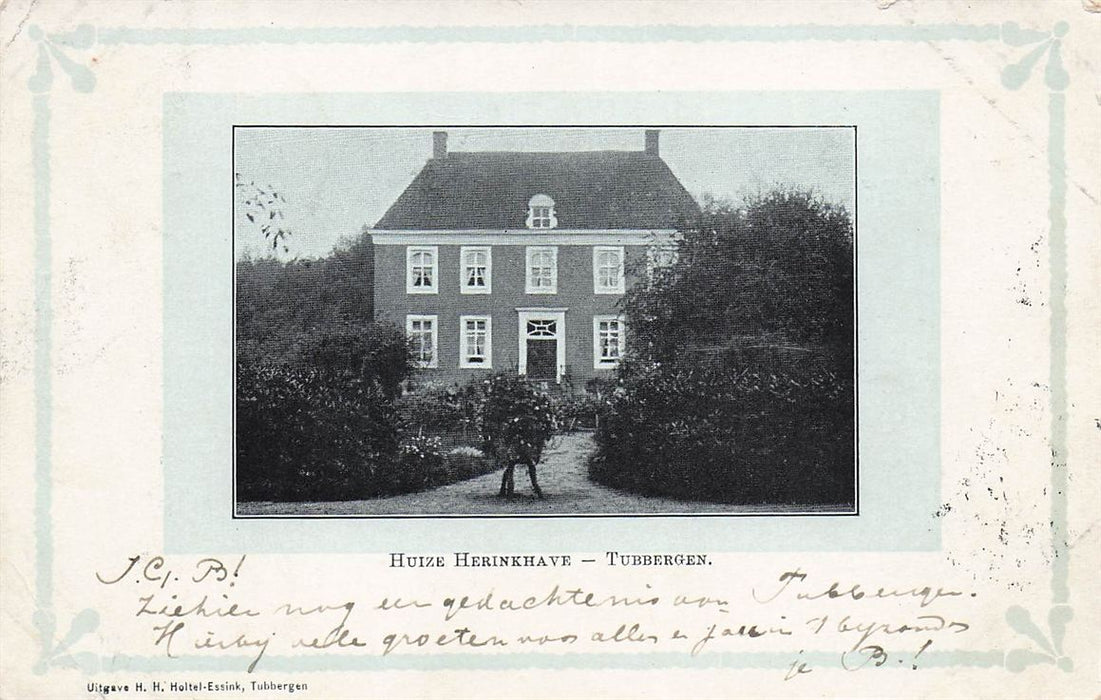 HUIZE HERINKHAVE – TUBBERGEN.
J. G. B!
Ziehier nog een gedachtenis van Tubbergen.
Hierbij vele groeten voor allen en jou in 't byzonder
je B.!
Uitgave H. H. Holtel-Essink, Tubbergen